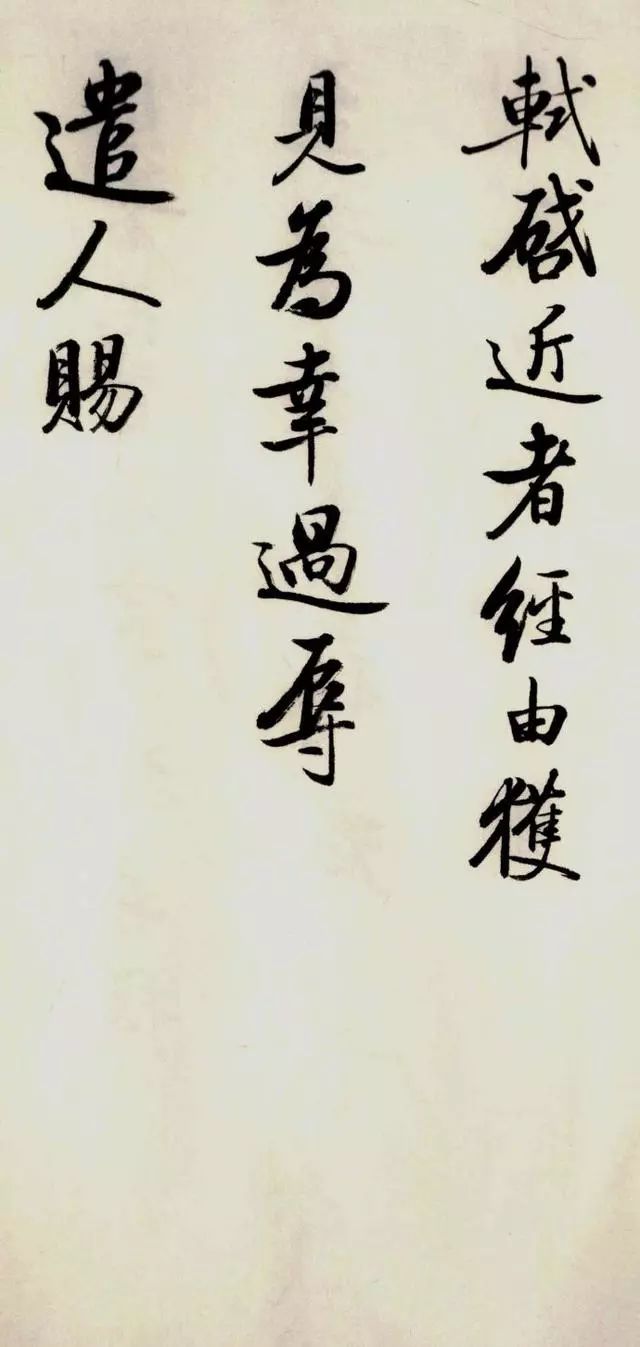 軾啓近者經由獲
見為幸過辱
遣人賜